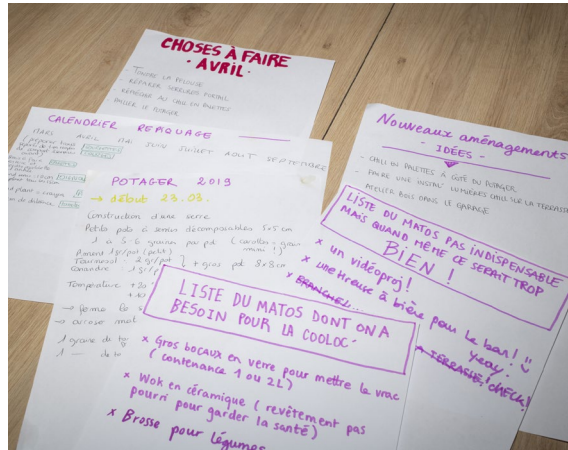 CHOSES À FAIRE
· AVRIL ·
- TONDRE LA PELOUSE
- RÉPARER SERRURES PORTAIL
- RÉFLÉCHIR AU CHILL EN PALETTES
- PAILLER LE POTAGER
CALENDRIER REPIQUAGE
MARS AVRIL MAI JUIN JUILLET AOUT SEPTEMBRE
POTAGER 2019
→ début 23.03.
Construction d'une serre
Petits pots à semis décomposables 5x5 cm
1 à 5-6 graines par pot (carottes = grain
mini!)
Piment 1gr/pot (petit)
Tournesol - 2gr/pot
+ gros pot 8x8 cm
Coriandre 1gr/p
Température +20
+10
→ ferme la s
→ arrose mat
1 graine de
1 — de to
LISTE DU MATOS DONT ON A
BESOIN POUR LA COOLOC-
x Gros bocaux en verre pour mettre le vrac
(contenance 1 ou 2L)
x Wok en céramique (revêtement pas
pourri pour garder la santé)
x Brosse pour légumes
Nouveaux aménagements
- IDÉES -
- CHILL EN PALETTES À CÔTÉ DU POTAGER
- FAIRE UNE INSTAL' LUMIÈRES CHILL SUR LA TERRASSE
- ATELIER BOIS DANS LE GARAGE
LISTE DU MATOS PAS INDISPENSABLE
MAIS QUAND MÊME CE SERAIT TROP
BIEN !
x un vidéoproj!
x une tireuse à bière pour le bar! :)
Yeay.
x BRANCHEL...
A TERRASSE! CHECK!